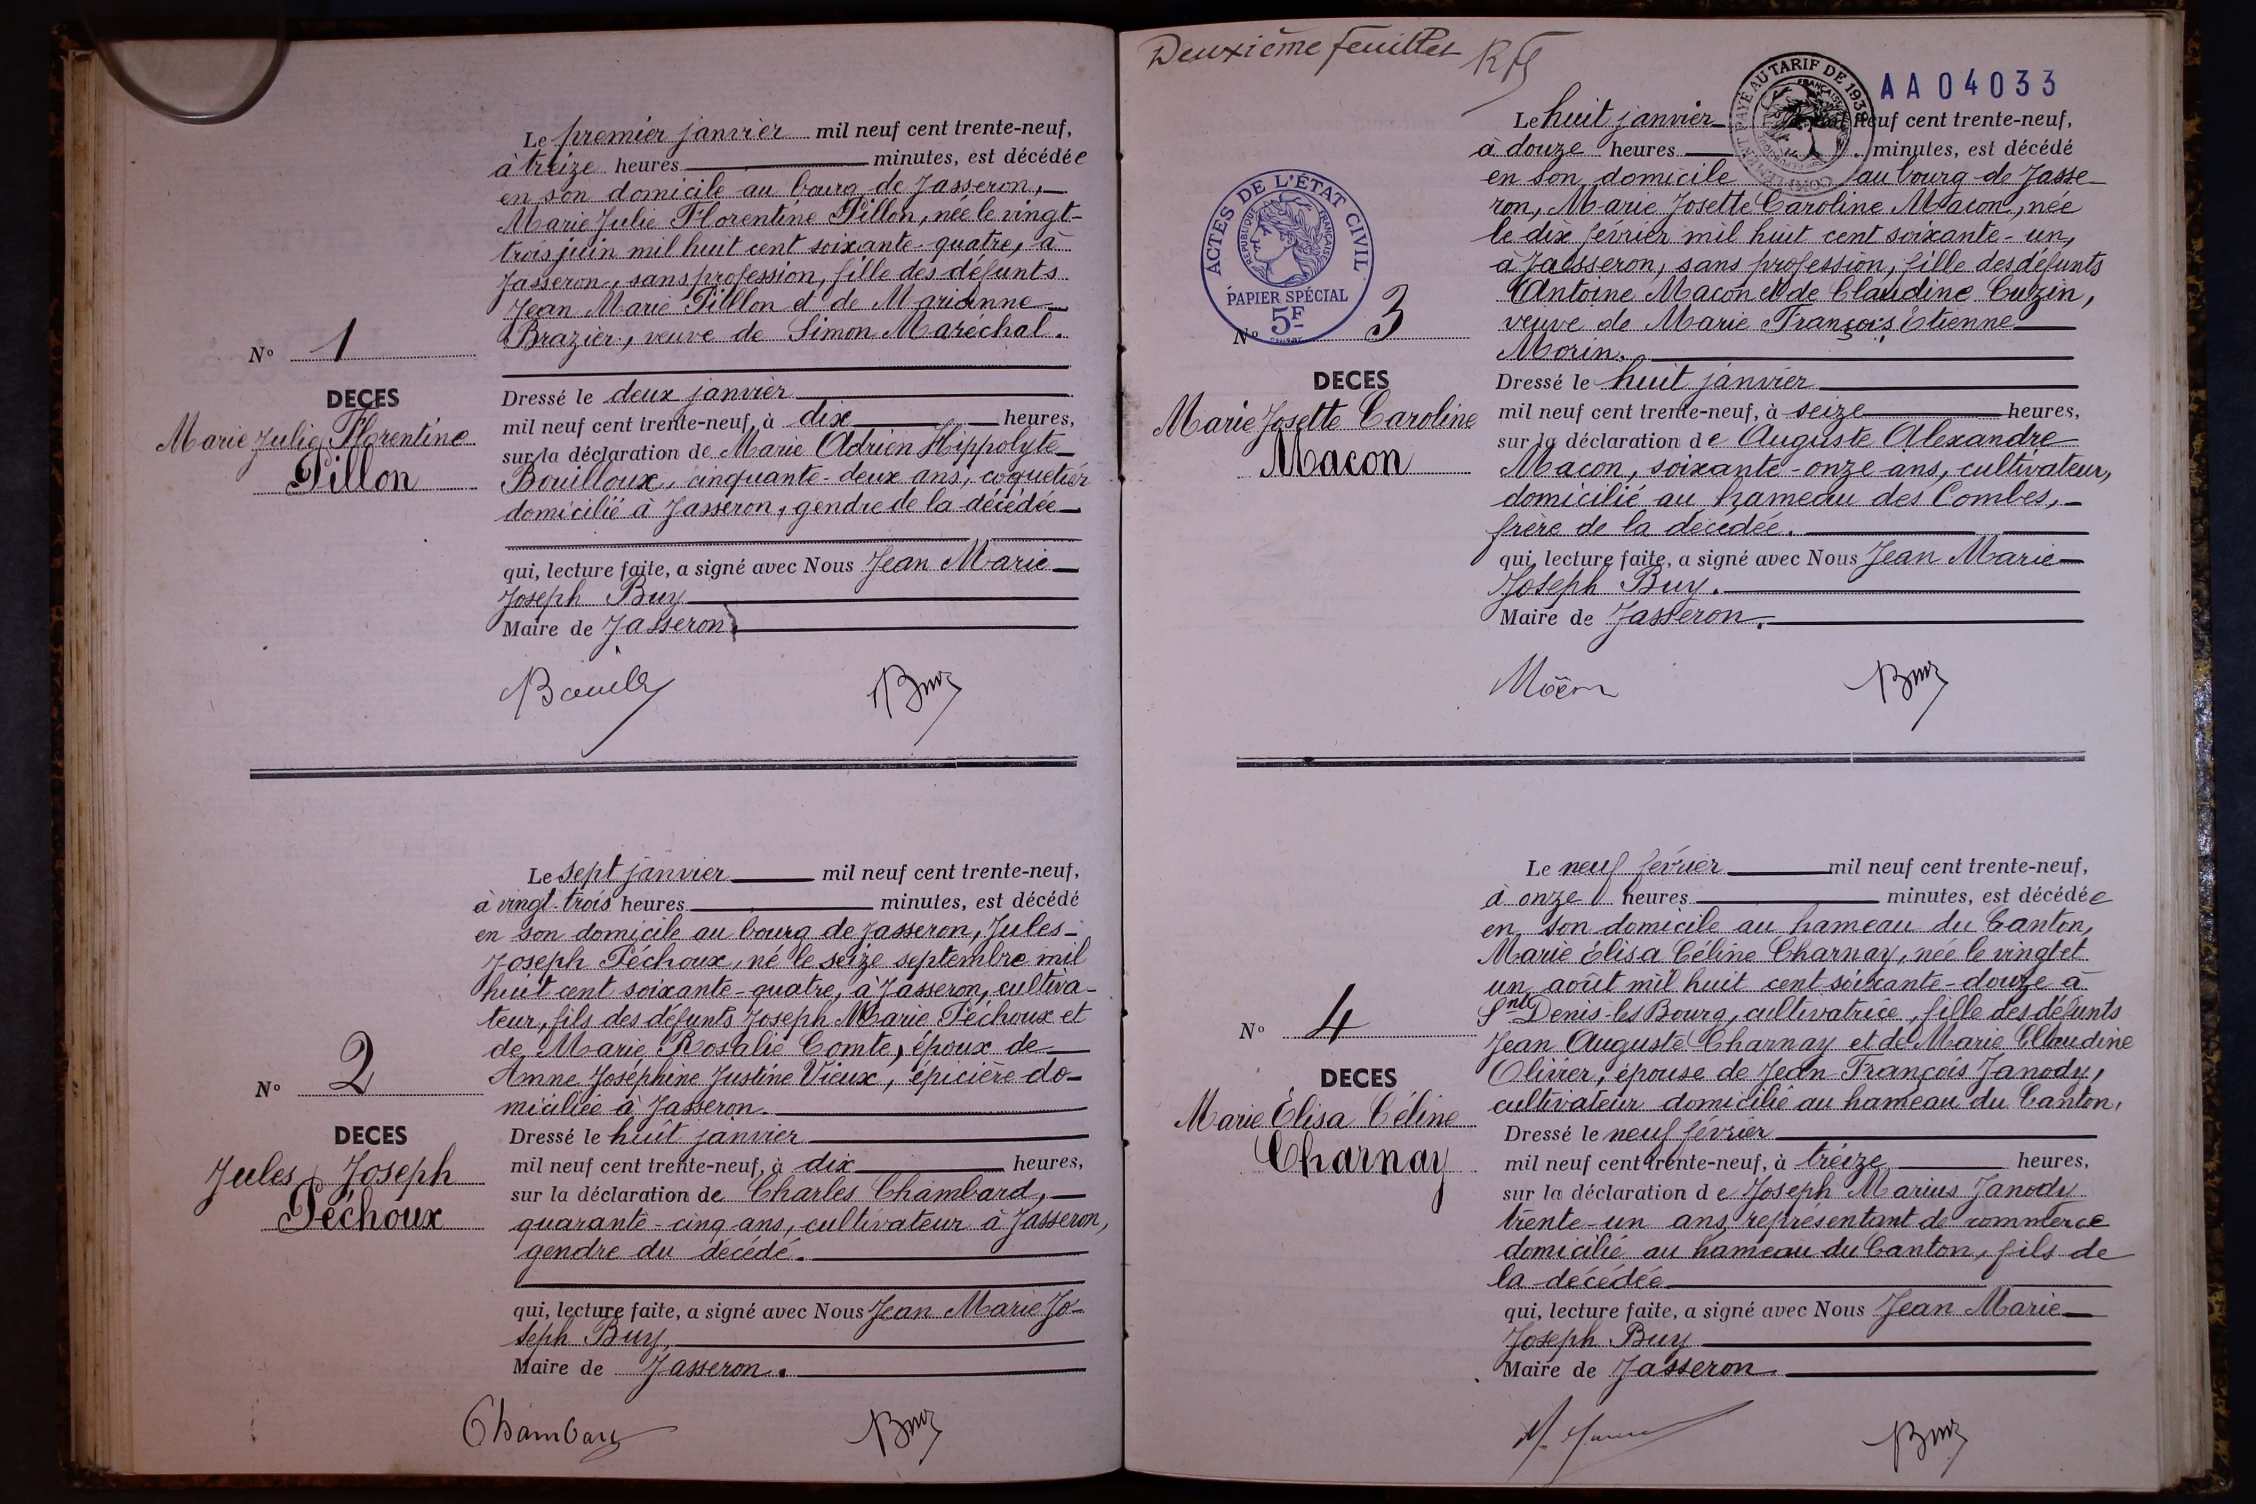 Le premier janvier mil neuf cent trente-neuf,
à treize heures minutes, est décédée
en son domicile au bourg de Jasseron,
Marie Julie Florentine Pillon, née le vingt-
trois juin mil huit cent soixante-quatre, à
Jasseron, sans profession, fille des défunts
Jean Marie Pillon et de Marianne
Brazier, veuve de Simon Maréchal.
N° 1
DECES
Marie Julie Florentine
Pillon
Dressé le deux janvier
mil neuf cent trente-neuf, à dix heures,
sur la déclaration de Marie Adrien Hippolyte
Bouilloux, cinquante-deux ans, coquetier
domicilié à Jasseron, gendre de la décédée
qui, lecture faite, a signé avec Nous Jean Marie
Joseph Buy
Maire de Jasseron.
Buy
Le sept janvier mil neuf cent trente-neuf,
à vingt-trois heures minutes, est décédé
en son domicile au bourg de Jasseron, Jules-
Joseph Péchoux, né le seize septembre mil
huit cent soixante-quatre, à Jasseron, cultiva-
teur, fils des défunts Joseph Marie Péchoux et
de Marie Rosalie Comte, époux de
Anne Joséphine Justine Vieux, épicière do-
miciliée à Jasseron.
N° 2
DECES
Jules Joseph
Péchoux
Dressé le huit janvier
mil neuf cent trente-neuf, à dix heures,
sur la déclaration de Charles Chambard,
quarante-cinq ans, cultivateur à Jasseron,
gendre du décédé.
qui, lecture faite, a signé avec Nous Jean Marie Jo-
seph Buy,
Maire de Jasseron.
Chambard
Buy
Deuxième feuillet
AA04033
PAYÉ AU TARIF DE 1938
Le huit janvier neuf cent trente-neuf,
à douze heures minutes, est décédé
en son domicile au bourg de Jasse-
ron, Marie Josette Caroline Macon, née
le dix février mil huit cent soixante-un,
à Jasseron, sans profession, fille des défunts
Antoine Macon et de Claudine Cuzin,
veuve de Marie François Etienne
Morin.
ACTES DE L'ÉTAT CIVIL
RÉPUBLIQUE FRANÇAISE
PAPIER SPÉCIAL
5F
N° 3
DECES
Marie Josette Caroline
Macon
Dressé le huit janvier
mil neuf cent trente-neuf, à seize heures,
sur la déclaration de Auguste Alexandre
Macon, soixante-onze ans, cultivateur,
domicilié au hameau des Combes,
frère de la décédée.
qui, lecture faite, a signé avec Nous Jean Marie
Joseph Buy.
Maire de Jasseron.
Buy
Le neuf février mil neuf cent trente-neuf,
à onze heures minutes, est décédée
en son domicile au hameau du Canton,
Marie Élisa Céline Charnay, née le vingt et
un août mil huit cent soixante-douze à
St Denis-les Bourg, cultivatrice, fille des défunts
Jean Auguste Charnay et de Marie Claudine
Olivier, épouse de Jean François Janody,
cultivateur domicilié au hameau du Canton,
N° 4
DECES
Marie Élisa Céline
Charnay
Dressé le neuf février
mil neuf cent trente-neuf, à treize heures,
sur la déclaration de Joseph Marius Janody
trente-un ans, représentant de commerce
domicilié au hameau du Canton, fils de
la décédée
qui, lecture faite, a signé avec Nous Jean Marie
Joseph Buy
Maire de Jasseron
Buy